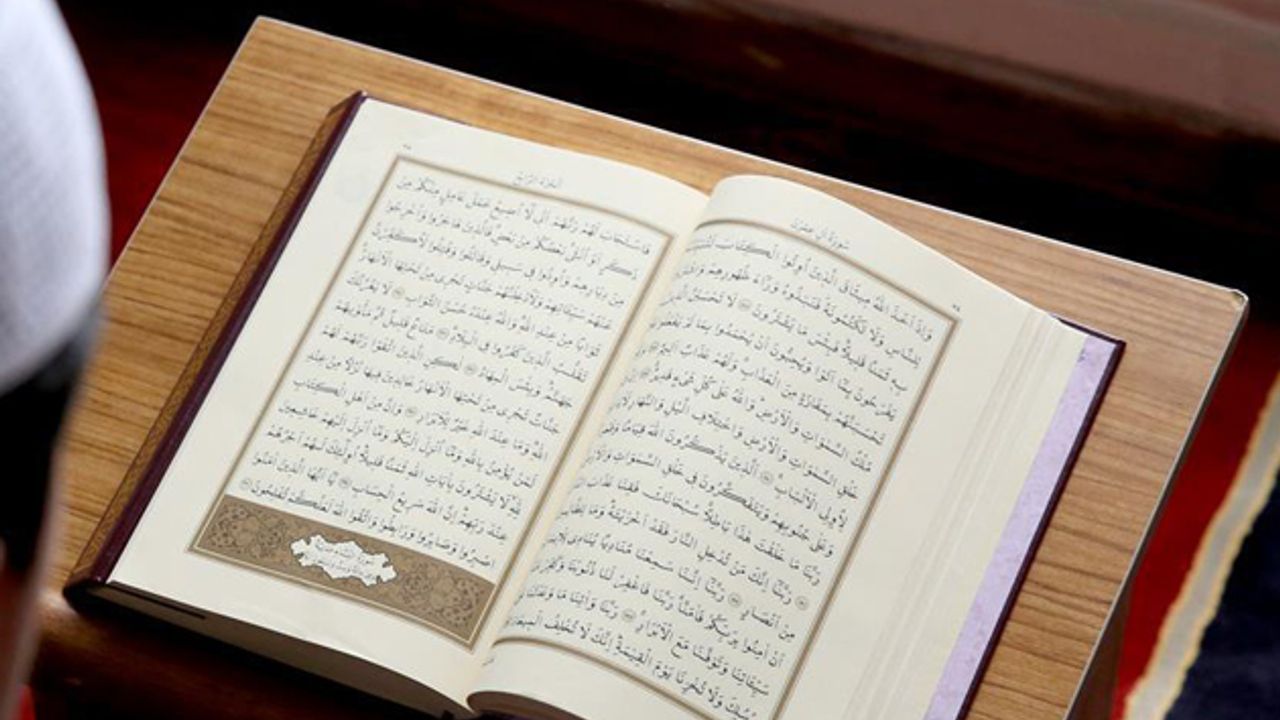 سُورَةُ اٰلِ عِمْرٰنَ
وَاِذْ اَخَذَ اللّٰهُ مِيثَاقَ الَّذِينَ اُوتُوا الْكِتَابَ
لِلنَّاسِ وَلَا تَكْتُمُونَهُ فَنَبَذُوهُ وَرَٓاءَ ظُهُورِهِمْ
بِهِ ثَمَنًا قَلِيلًا فَبِئْسَ مَا يَشْتَرُونَ لَا تَحْسَبَنَّ الَّذِينَ
يَفْرَحُونَ بِمَٓا اَتَوْا وَيُحِبُّونَ اَنْ يُحْمَدُوا بِمَا لَمْ يَفْعَلُوا
تَحْسَبَنَّهُمْ بِمَفَازَةٍ مِنَ الْعَذَابِ وَلَهُمْ عَذَابٌ اَلِيمٌ
مُلْكُ السَّمٰوَاتِ وَالْاَرْضِ وَاللّٰهُ عَلٰى كُلِّ شَيْءٍ قَدِيرٌ
خَلْقِ السَّمٰوَاتِ وَالْاَرْضِ وَاخْتِلَافِ الَّيْلِ وَالنَّهَارِ
لِاُولِي الْاَلْبَابِ الَّذِينَ يَذْكُرُونَ اللّٰهَ قِيَامًا
وَعَلٰى جُنُوبِهِمْ وَيَتَفَكَّرُونَ فِي خَلْقِ السَّمٰوَاتِ
رَبَّنَا مَا خَلَقْتَ هٰذَا بَاطِلًا سُبْحَانَكَ فَقِنَا عَذَابَ
رَبَّنَٓا اِنَّكَ مَنْ تُدْخِلِ النَّارَ فَقَدْ اَخْزَيْتَهُ وَمَا
مِنْ اَنْصَارٍ رَبَّنَٓا اِنَّنَا سَمِعْنَا مُنَادِيًا يُنَادِي
اَنْ اٰمِنُوا بِرَبِّكُمْ فَاٰمَنَّا رَبَّنَا فَاغْفِرْ لَنَا ذُنُوبَنَا وَكَفِّرْ
سَيِّـَٔاتِنَا وَتَوَفَّنَا مَعَ الْاَبْرَارِ رَبَّنَا وَاٰتِنَا مَا وَعَدْتَنَا
رُسُلِكَ وَلَا تُخْزِنَا يَوْمَ الْقِيٰمَةِ اِنَّكَ لَا تُخْلِفُ الْمِيعَادَ
اَلْجُزْءُ الرَّابِعُ
فَاسْتَجَابَ لَهُمْ رَبُّهُمْ اَنِّي لَٓا اُضِيعُ عَمَلَ عَامِلٍ مِنْكُمْ مِنْ
ذَكَرٍ اَوْ اُنْثٰى بَعْضُكُمْ مِنْ بَعْضٍ فَالَّذِينَ هَاجَرُوا وَاُخْرِجُوا
مِنْ دِيَارِهِمْ وَاُوذُوا فِي سَبِيلِي وَقَاتَلُوا وَقُتِلُوا لَاُكَفِّرَنَّ
عَنْهُمْ سَيِّـَٔاتِهِمْ وَلَاُدْخِلَنَّهُمْ جَنَّاتٍ تَجْرِي مِنْ تَحْتِهَا الْاَنْهَارُ
ثَوَابًا مِنْ عِنْدِ اللّٰهِ وَاللّٰهُ عِنْدَهُ حُسْنُ الثَّوَابِ لَا يَغُرَّنَّكَ
تَقَلُّبُ الَّذِينَ كَفَرُوا فِي الْبِلَادِ مَتَاعٌ قَلِيلٌ ثُمَّ مَأْوٰيهُمْ
جَهَنَّمُ وَبِئْسَ الْمِهَادُ لٰكِنِ الَّذِينَ اتَّقَوْا رَبَّهُمْ لَهُمْ
جَنَّاتٌ تَجْرِي مِنْ تَحْتِهَا الْاَنْهَارُ خَالِدِينَ فِيهَا نُزُلًا مِنْ عِنْدِ
اللّٰهِ وَمَا عِنْدَ اللّٰهِ خَيْرٌ لِلْاَبْرَارِ وَاِنَّ مِنْ اَهْلِ الْكِتَابِ
لَمَنْ يُؤْمِنُ بِاللّٰهِ وَمَٓا اُنْزِلَ اِلَيْكُمْ وَمَٓا اُنْزِلَ اِلَيْهِمْ خَاشِعِينَ
لِلّٰهِ لَا يَشْتَرُونَ بِاٰيَاتِ اللّٰهِ ثَمَنًا قَلِيلًا اُولٰٓئِكَ لَهُمْ اَجْرُهُمْ
عِنْدَ رَبِّهِمْ اِنَّ اللّٰهَ سَرِيعُ الْحِسَابِ يَٓا اَيُّهَا الَّذِينَ اٰمَنُوا
اصْبِرُوا وَصَابِرُوا وَرَابِطُوا وَاتَّقُوا اللّٰهَ لَعَلَّكُمْ تُفْلِحُونَ